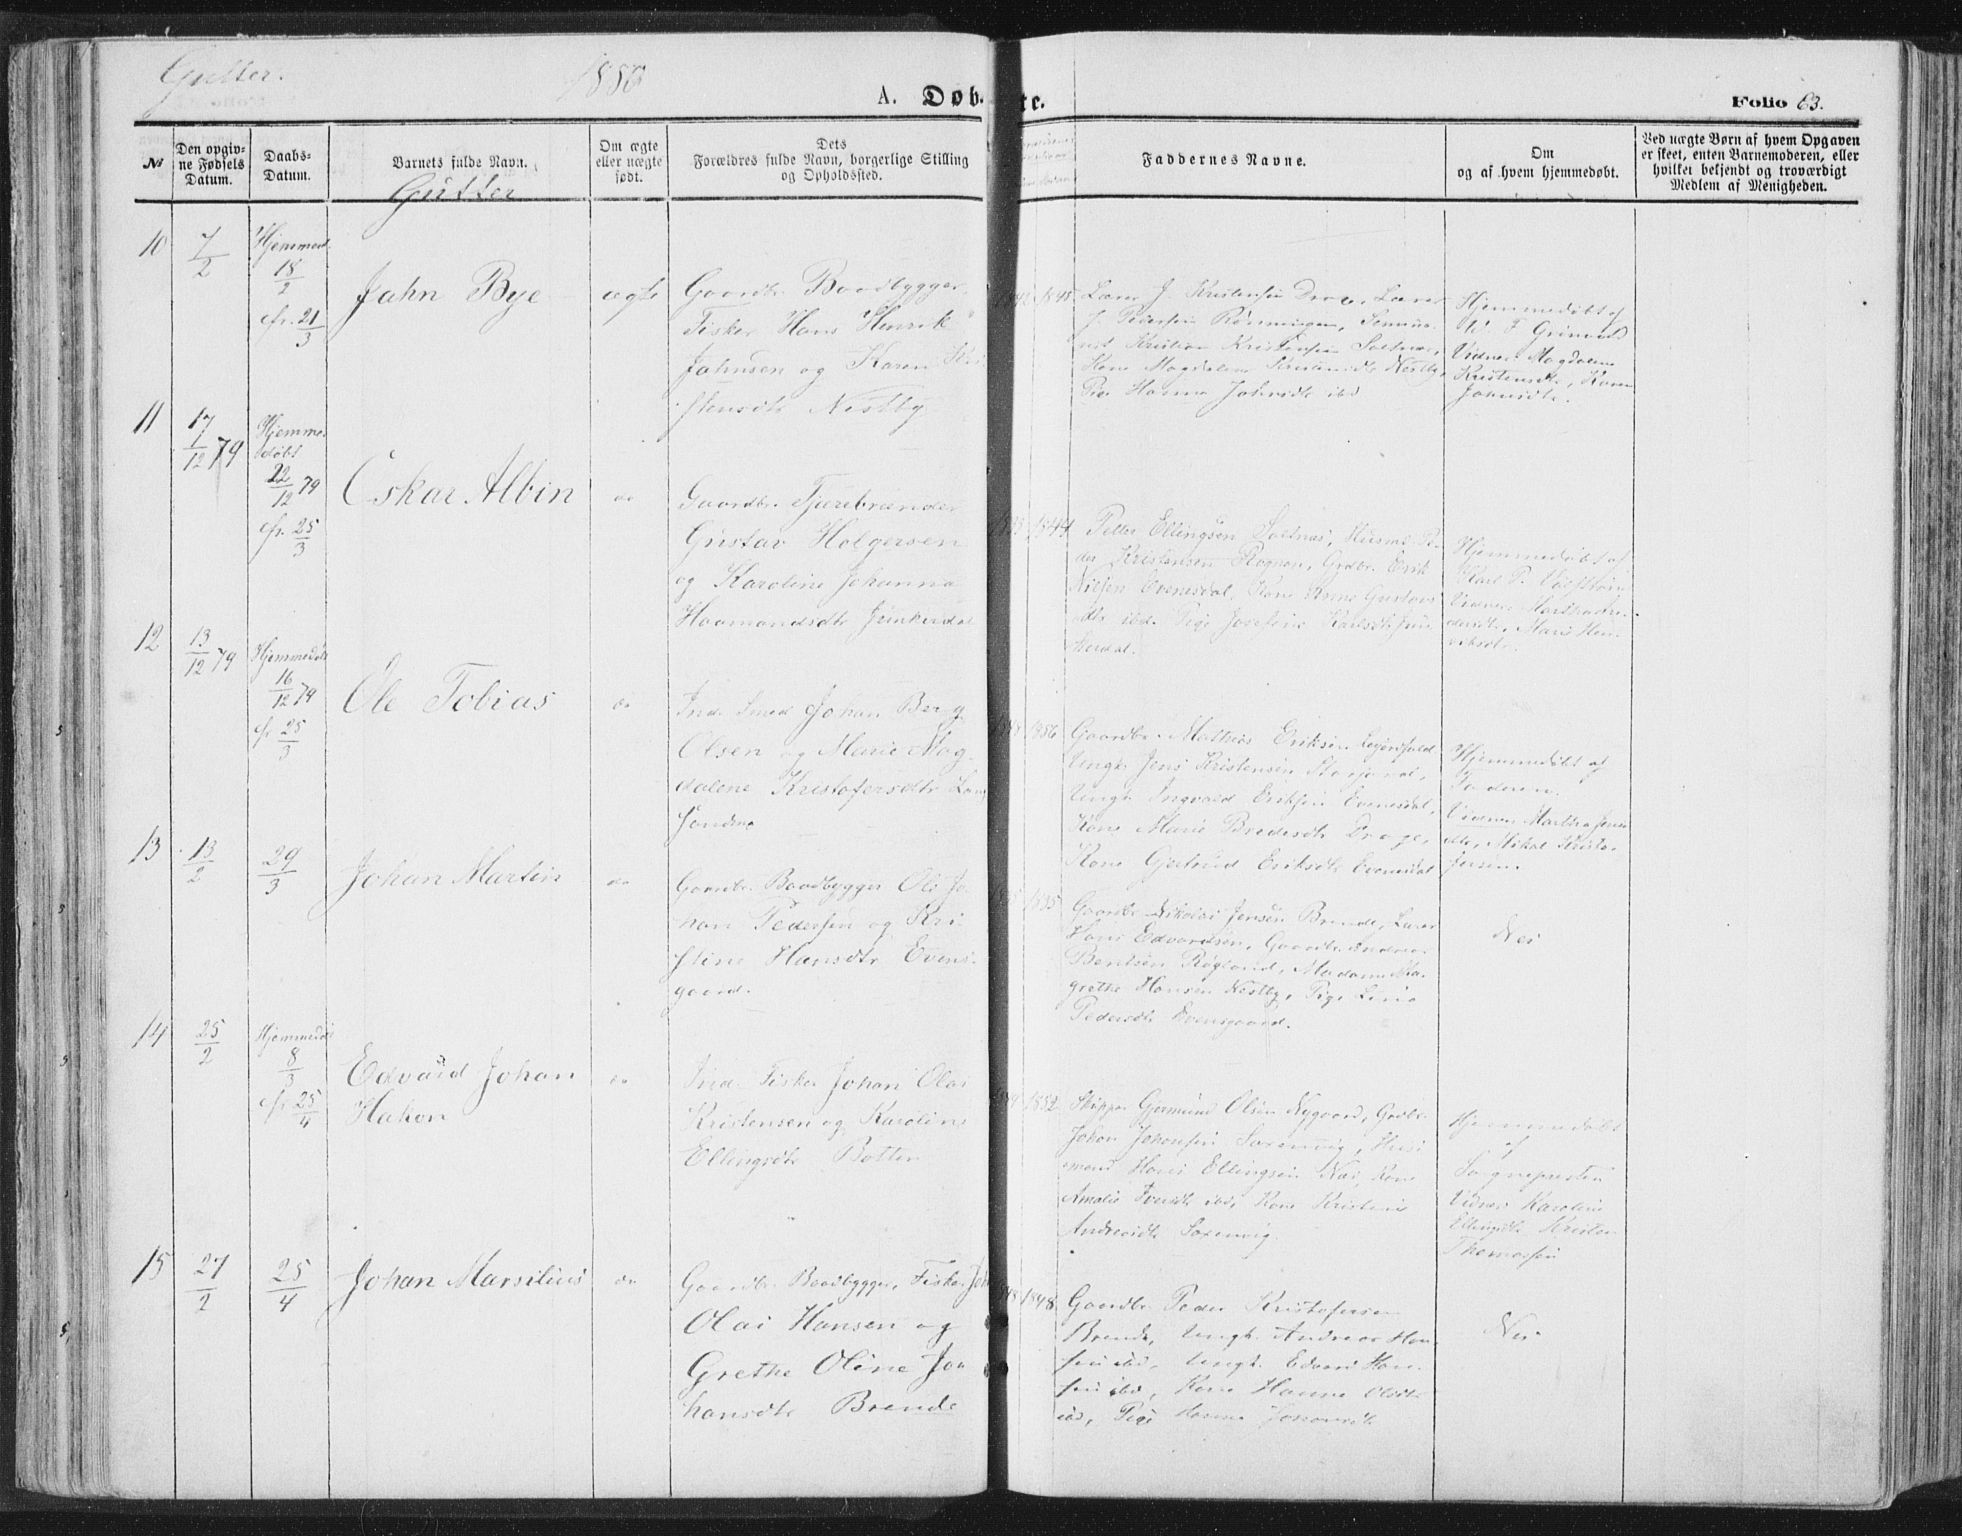 Gutter.
1880
A. Døb-
te.
Folio 63.
No
Den opgiv-
ne Fødsels
Datum.
Daabs-
Datum.
Barnets fulde Navn.
Gutter
Om ægte
eller uægte
født.
Dets
Forældres fulde Navn, borgerlige Stilling
og Opholdssted.
Faddernes Navne.
Om
og af hvem hjemmedøbt.
Ved uægte Børn af hvem Opgaven
er skeet, enten Barnemoderen, eller
hvilket bekjendt og troværdigt
Medlem af Menigheden.
10
7/2
Hjemmed.
18/2
fr. 21/3
Jahn Bye
ægte
Gaardbr. Baadbygger,
Fisker Hans Henrik
Jahnsen og Karen Kri
stensdtr Nestby
1845
Lærer J. Kristensen Lærer
J. Pedersen Rönningen,
Kristian Kristensen Saltnæs,
Kone Magdalena Nestby,
Pige Hanna Jahnsdtr ibd
Hjemmedøbt af
Vidner Magdalena
Kristensdtr, Karen
Jahnsdtr.
11
17/12 79
Hjemme
døbt
22/12 79
fr. 25/3
Oskar Albin
do
Gaardbr. Tjærebrænder
Gustav Holgersen
og Karoline Johanna
Haamondsdtr Junkerdal
1844
Peder Ellingsen Saltnæs, Husmd Pe
der Kristensen Rognan, Grdbr. Erik
Nilsen Evenesdal, Kone Anne Gustavs
dtr ibd. Pige Josefine Karlsdtr Jun
kerdal.
Hjemmedøbt af
Karl P.
Vidner Martha Pe
dersdtr, Maris Hen
riksdtr.
12
13/12 79
Hjemmedøbt
16/12 79
fr 25/3
Ole Tobias
do
Ind. Smed Johan Berg
Olsen og Marie Mag
dalene Kristofersdtr Lang
sandmo
1856
Gaardbr. Mathias Eriksen
Ungk. Jens Kristensen Storjord,
Ungk. Ingvald Eriksen Evenesdal,
Kone Marie Bredesdtr Drage,
Kone Gjertrud Eriksdtr Evenesdal
Hjemmedøbt af
Faderen.
Vidner Martha Jens
dtr, Mikal Kristo
fersen.
13
13/2
29/3
Johan Martin
do
Gaardbr. Baadbygger Ole Jo
han Pedersen og Kri
stine Hansdtr Evens
gaard.
1835
Gaardbr Nikolai Jensen Brende, Lærer
Hans Edvardsen, Gaardbr. Andreas
Bentsen Røgland, Madame Ma
grethe Hansen Nestby, Pige Lina
Pedersdtr Evensgaard.
Nei
14
25/2
Hjemmedøbt
8/3
fr 25/4
Edvard Johan
Hakon
do
Ind. Fisker Johan Olai
Kristensen og Karoline
Ellingsdtr Botten
1852
Skipper Gjermund Olsen Nygaard, Grdbr.
Johan Johansen Saxenvig, Hus
mand Hans Ellingsen Næs, Kone
Amalie Iversdtr ibd, Kone Kristine
Andreasdtr Saxenvig.
Hjemmedøbt
af
Sognepresten
Vidner Karoline
Ellingsdtr Kristen
Thomassen
15
27/2
25/4
Johan Marsilius
do
Gaardbr. Baadbygger, Fisker Joh
Olai Hansen og
Grethe Oline Jo
hansdtr Brende
1848
Gaardbr. Peder Kristofersen
Brende, Ungk. Andreas Han
sen ibd, Ungk. Edvard Han
sen ibd, Kone Hanna Olsdtr
ibd, Pige Hanna Johansdtr
Nei